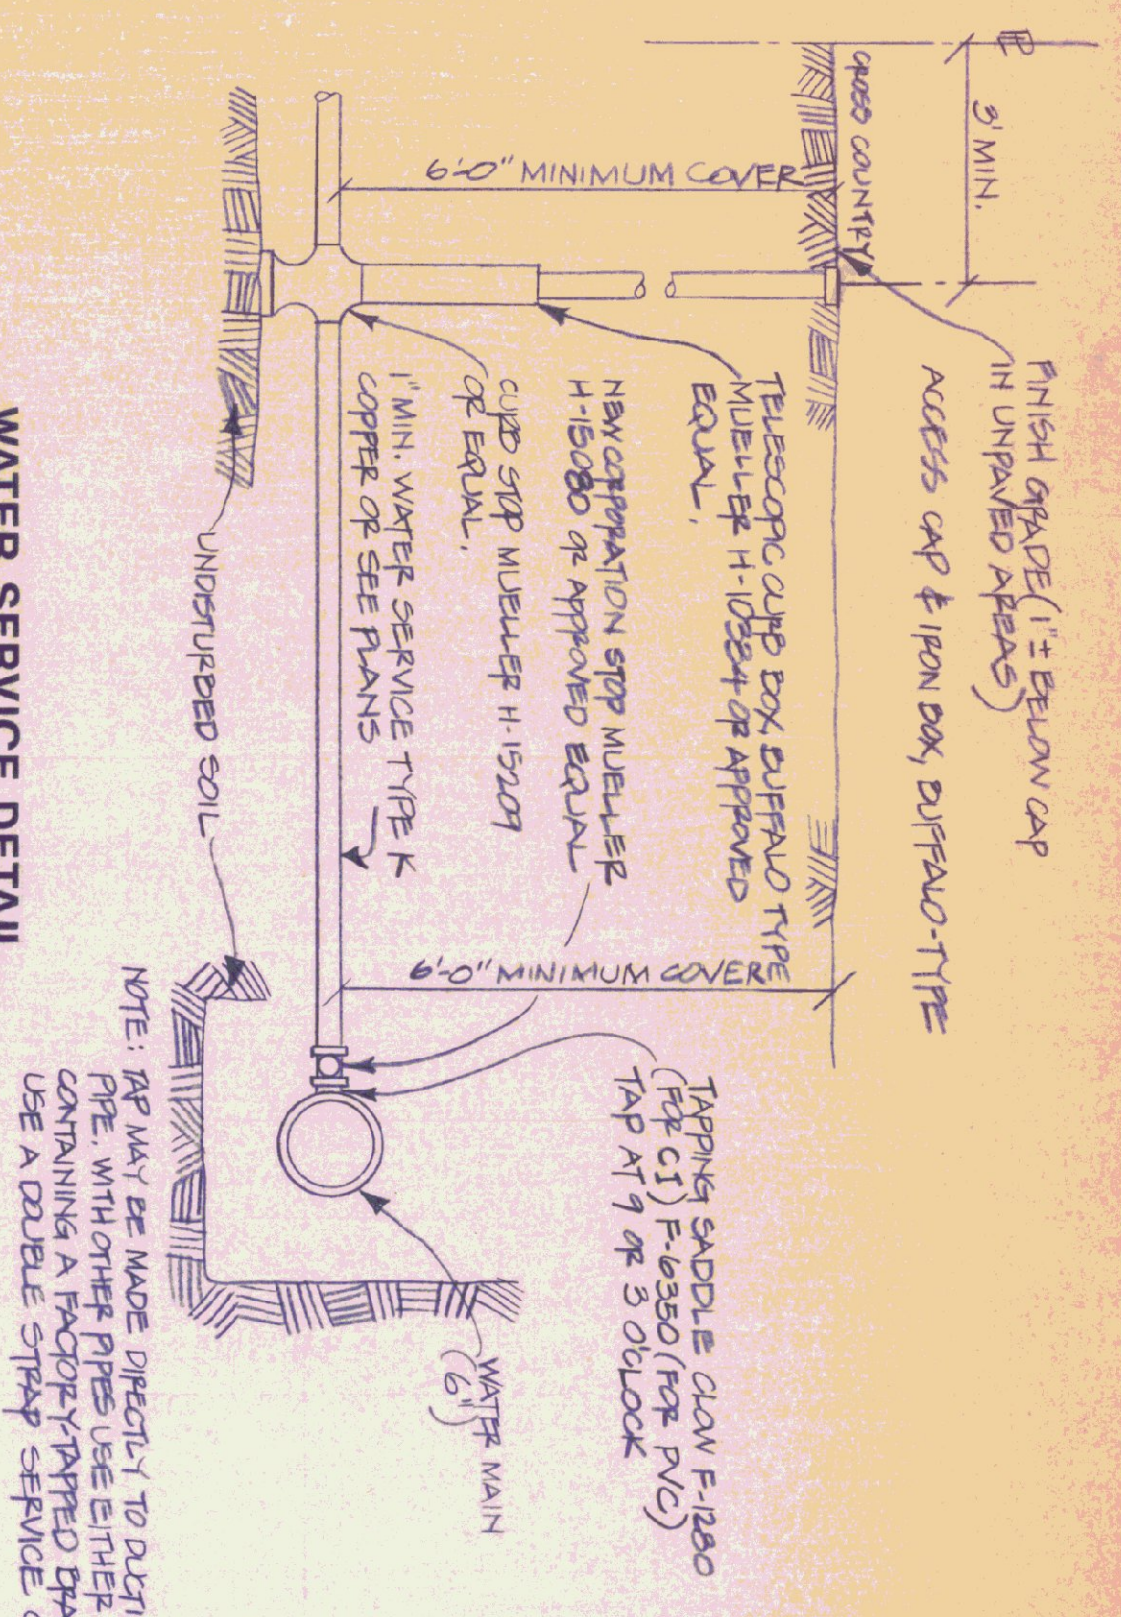 ℄
3' MIN.
CROSS COUNTRY
FINISH GRADE (1"± BELOW CAP
IN UNPAVED AREAS)
ACCESS CAP & IRON BOX, BUFFALO-TYPE
6'-0" MINIMUM COVER
TELESCOPIC CURB BOX, BUFFALO TYPE
MUELLER H-10334 OR APPROVED
EQUAL.
NEW CORPORATION STOP MUELLER
H-15080 OR APPROVED EQUAL
CURB STOP MUELLER H-15209
OR EQUAL.
1" MIN. WATER SERVICE TYPE K
COPPER OR SEE PLANS
6'-0" MINIMUM COVER
TAPPING SADDLE CLOW F-1280
(FOR CI) F-6350 (FOR PVC)
TAP AT 9 OR 3 O'CLOCK
WATER MAIN
(6")
UNDISTURBED SOIL
NOTE: TAP MAY BE MADE DIRECTLY TO DUCTI
PIPE. WITH OTHER PIPES USE EITHER
CONTAINING A FACTORY-TAPPED BRA
USE A DOUBLE STRAP SERVICE
WATER SERVICE DETAIL